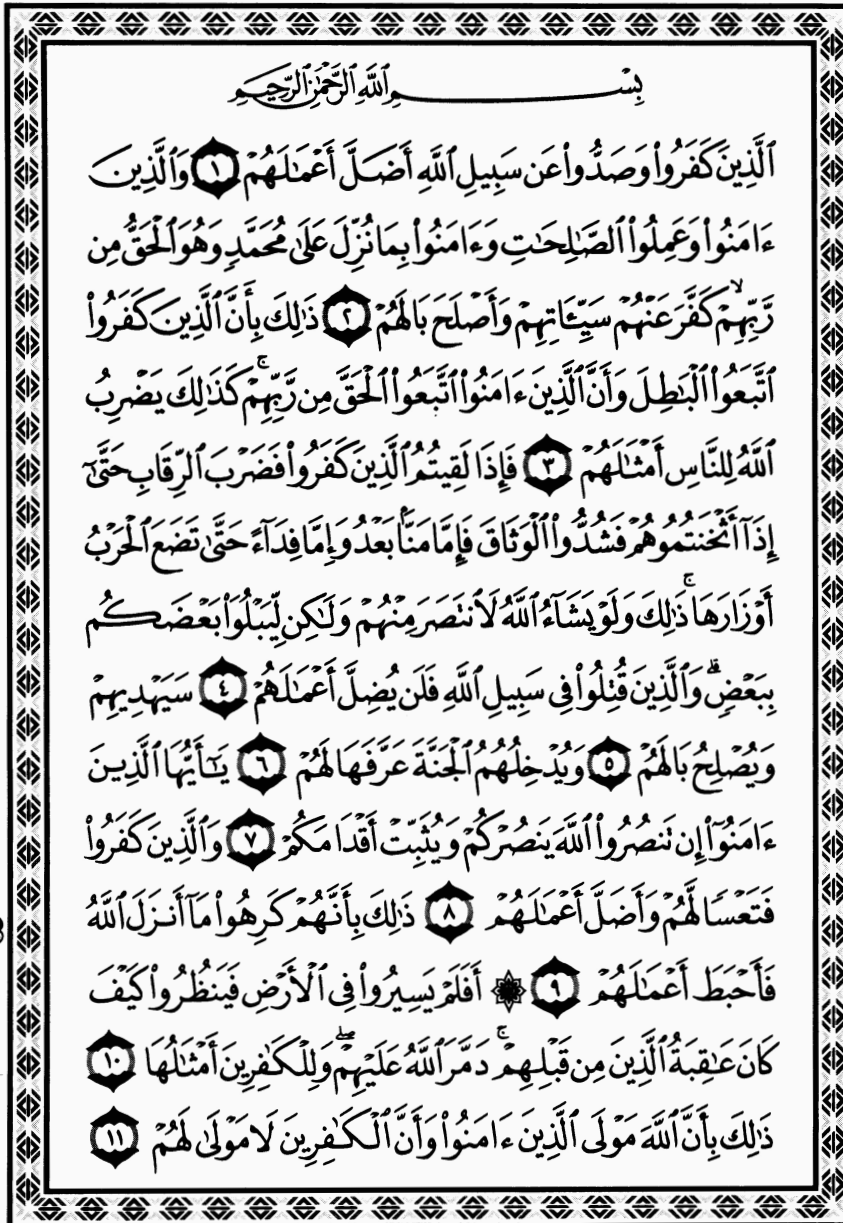 بِسْمِ ٱللَّهِ ٱلرَّحْمَٰنِ ٱلرَّحِيمِ
ٱلَّذِينَ كَفَرُوا۟ وَصَدُّوا۟ عَن سَبِيلِ ٱللَّهِ أَضَلَّ أَعْمَٰلَهُمْ ١ وَٱلَّذِينَ
ءَامَنُوا۟ وَعَمِلُوا۟ ٱلصَّٰلِحَٰتِ وَءَامَنُوا۟ بِمَا نُزِّلَ عَلَىٰ مُحَمَّدٍ وَهُوَ ٱلْحَقُّ مِن
رَّبِّهِمْ ۙ كَفَّرَ عَنْهُمْ سَيِّـَٔاتِهِمْ وَأَصْلَحَ بَالَهُمْ ٢ ذَٰلِكَ بِأَنَّ ٱلَّذِينَ كَفَرُوا۟
ٱتَّبَعُوا۟ ٱلْبَٰطِلَ وَأَنَّ ٱلَّذِينَ ءَامَنُوا۟ ٱتَّبَعُوا۟ ٱلْحَقَّ مِن رَّبِّهِمْ ۚ كَذَٰلِكَ يَضْرِبُ
ٱللَّهُ لِلنَّاسِ أَمْثَٰلَهُمْ ٣ فَإِذَا لَقِيتُمُ ٱلَّذِينَ كَفَرُوا۟ فَضَرْبَ ٱلرِّقَابِ حَتَّىٰٓ
إِذَآ أَثْخَنتُمُوهُمْ فَشُدُّوا۟ ٱلْوَثَاقَ فَإِمَّا مَنًّۢا بَعْدُ وَإِمَّا فِدَآءً حَتَّىٰ تَضَعَ ٱلْحَرْبُ
أَوْزَارَهَا ۚ ذَٰلِكَ وَلَوْ يَشَآءُ ٱللَّهُ لَٱنتَصَرَ مِنْهُمْ وَلَٰكِن لِّيَبْلُوَا۟ بَعْضَكُم
بِبَعْضٍ ۗ وَٱلَّذِينَ قُتِلُوا۟ فِى سَبِيلِ ٱللَّهِ فَلَن يُضِلَّ أَعْمَٰلَهُمْ ٤ سَيَهْدِيهِمْ
وَيُصْلِحُ بَالَهُمْ ٥ وَيُدْخِلُهُمُ ٱلْجَنَّةَ عَرَّفَهَا لَهُمْ ٦ يَٰٓأَيُّهَا ٱلَّذِينَ
ءَامَنُوٓا۟ إِن تَنصُرُوا۟ ٱللَّهَ يَنصُرْكُمْ وَيُثَبِّتْ أَقْدَامَكُمْ ٧ وَٱلَّذِينَ كَفَرُوا۟
فَتَعْسًا لَّهُمْ وَأَضَلَّ أَعْمَٰلَهُمْ ٨ ذَٰلِكَ بِأَنَّهُمْ كَرِهُوا۟ مَآ أَنزَلَ ٱللَّهُ
فَأَحْبَطَ أَعْمَٰلَهُمْ ٩ ۞ أَفَلَمْ يَسِيرُوا۟ فِى ٱلْأَرْضِ فَيَنظُرُوا۟ كَيْفَ
كَانَ عَٰقِبَةُ ٱلَّذِينَ مِن قَبْلِهِمْ ۚ دَمَّرَ ٱللَّهُ عَلَيْهِمْ ۖ وَلِلْكَٰفِرِينَ أَمْثَٰلُهَا ١٠
ذَٰلِكَ بِأَنَّ ٱللَّهَ مَوْلَى ٱلَّذِينَ ءَامَنُوا۟ وَأَنَّ ٱلْكَٰفِرِينَ لَا مَوْلَىٰ لَهُمْ ١١